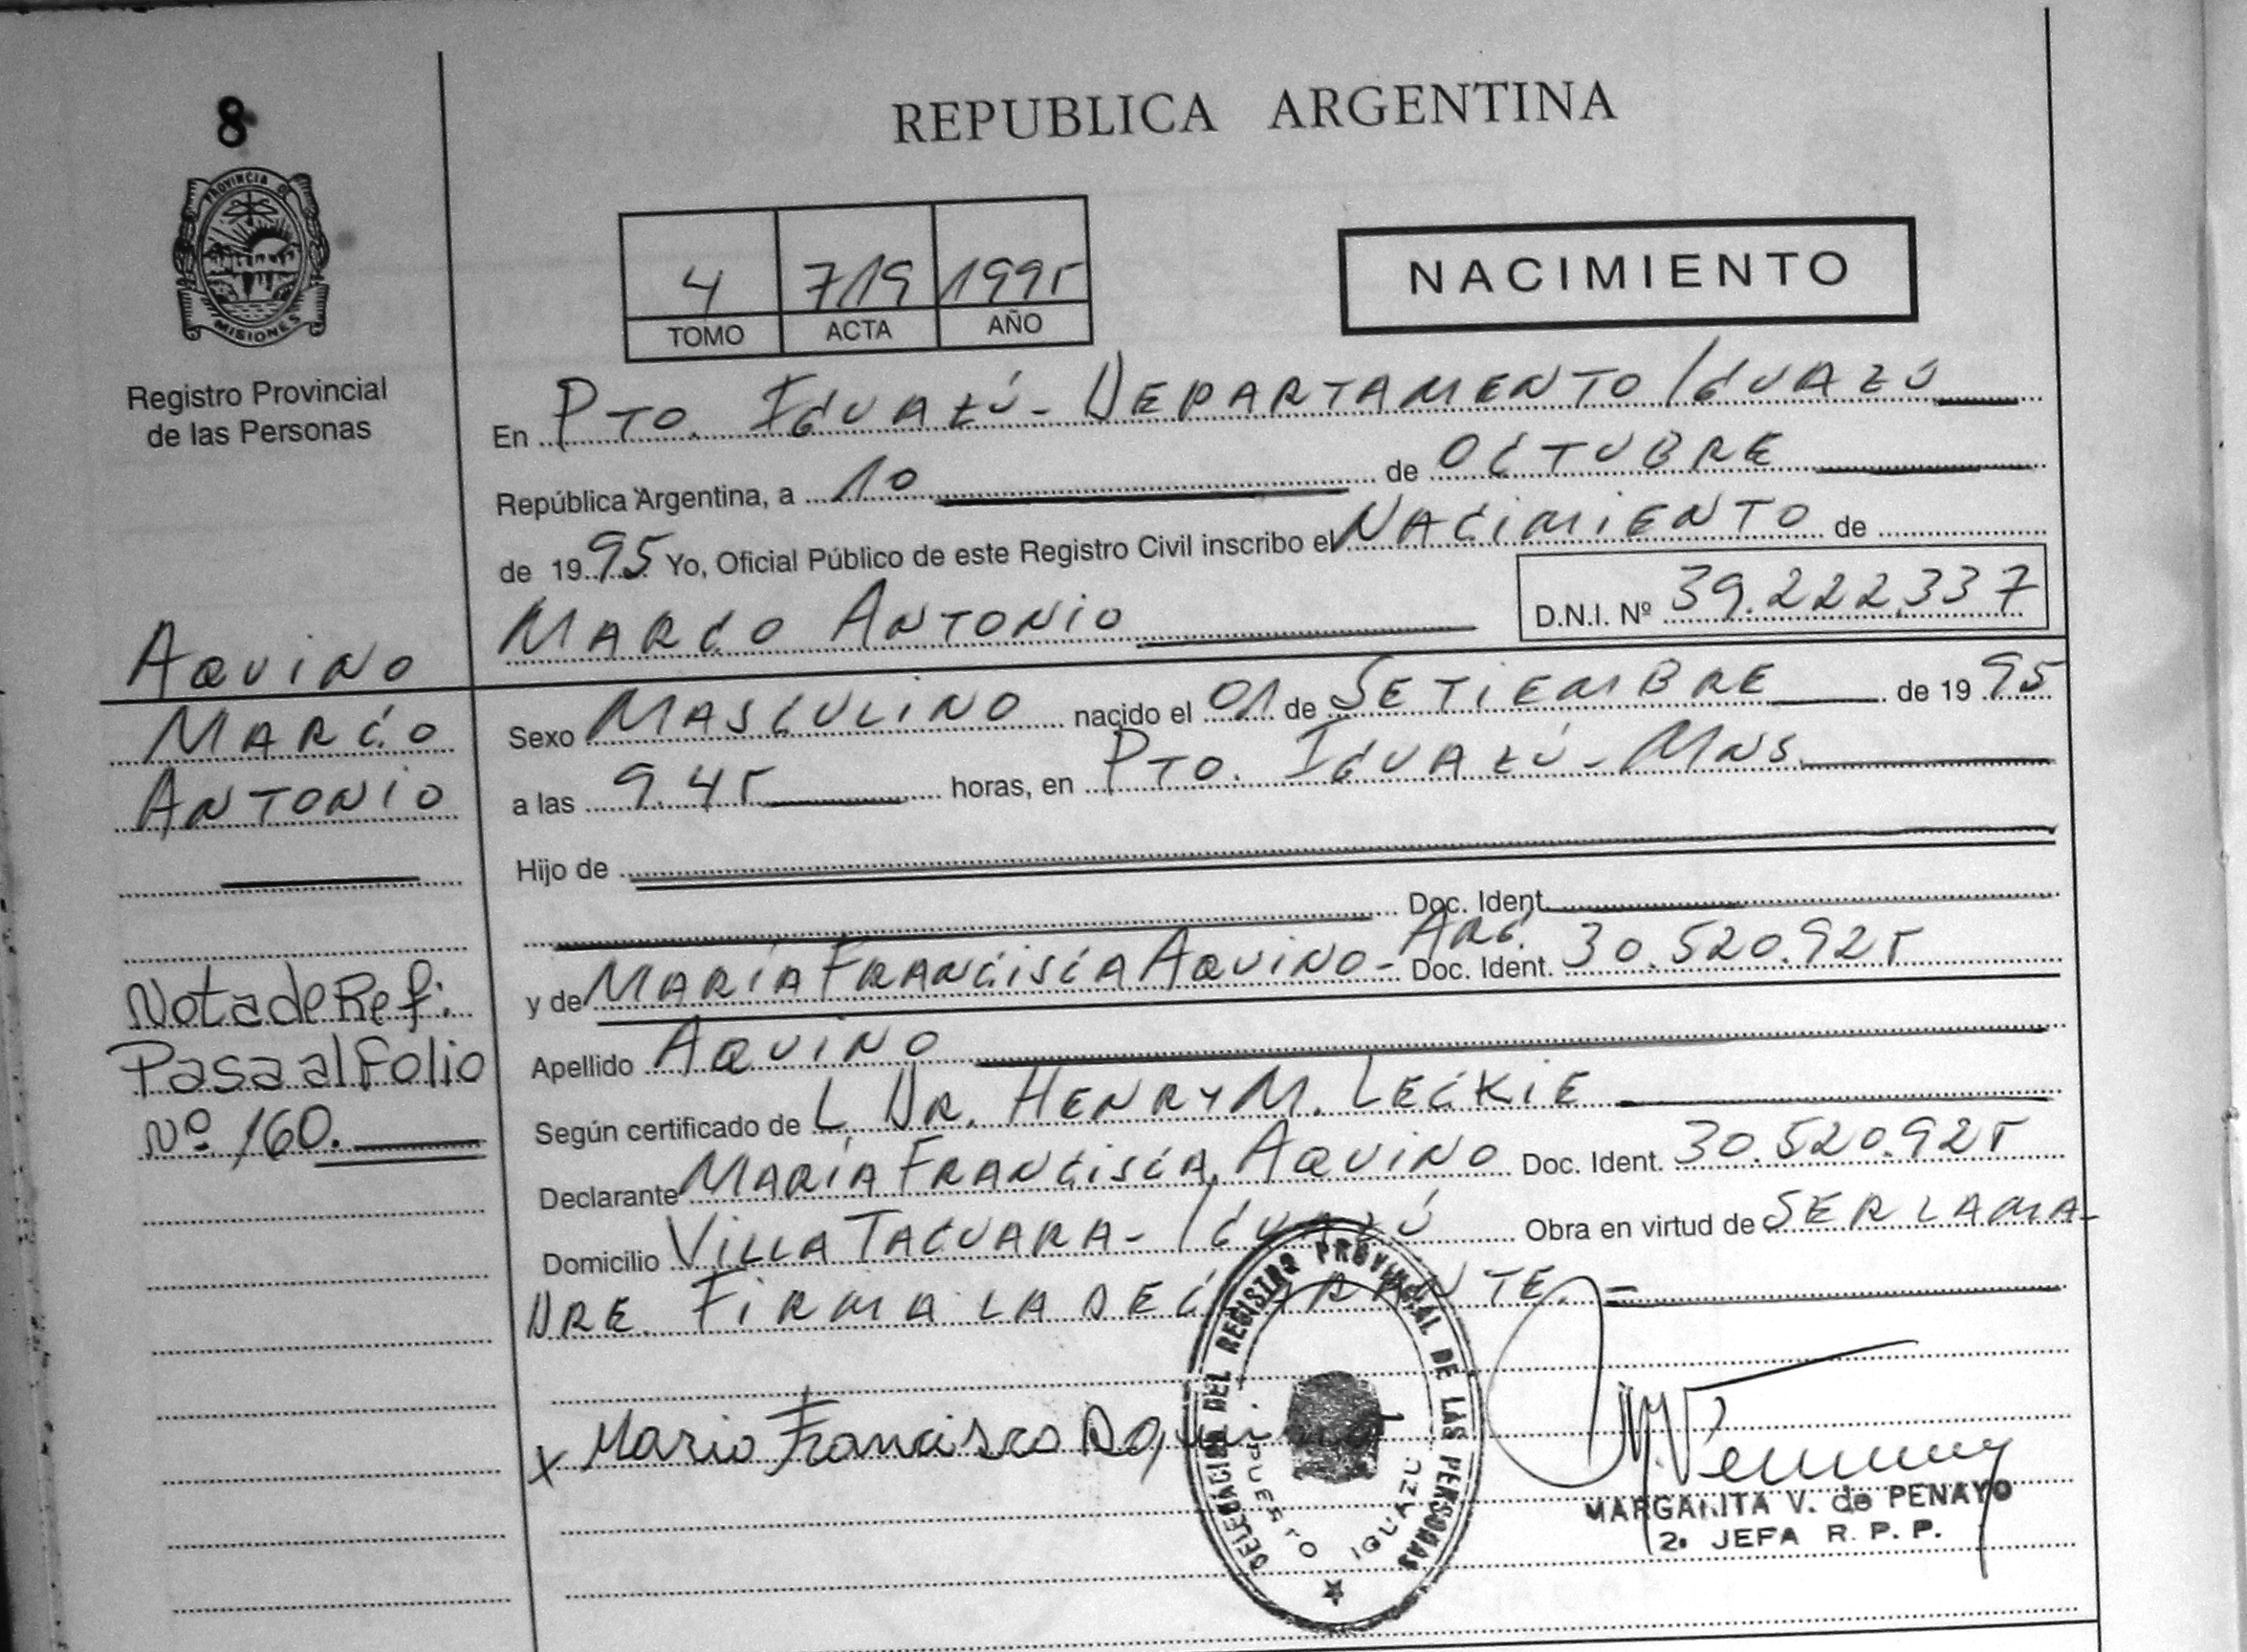 8
PROVINCIA DE
MISIONES
Registro Provincial
de las Personas
REPUBLICA ARGENTINA
4 719 1995
TOMO ACTA AÑO
NACIMIENTO
En PTO. IGUAZÚ - DEPARTAMENTO IGUAZÚ
República Argentina, a 10 de OCTUBRE
de 1995 Yo, Oficial Público de este Registro Civil inscribo el NACIMIENTO de
MARCO ANTONIO D.N.I. Nº 39.222.337
AQUINO
MARCO
ANTONIO
Sexo MASCULINO nacido el 01 de SETIEMBRE de 1995
a las 9.45 horas, en PTO. IGUAZÚ - MNS.
Hijo de
Doc. Ident.
y de MARÍA FRANCISCA AQUINO - ARG. Doc. Ident. 30.520.925
Apellido AQUINO
Según certificado de L DR. HENRY M. LECKIE
Declarante MARÍA FRANCISCA AQUINO Doc. Ident. 30.520.925
Domicilio VILLA TACUARA - IGUAZÚ Obra en virtud de SER LA MA-
DRE. FIRMA LA DECLARANTE. =
Nota de Ref:
Pasa al Folio
Nº 160.
x Maria Francisca Aquino
DELEGACION DEL REGISTRO PROVINCIAL DE LAS PERSONAS
PUERTO IGUAZU
MARGARITA V. de PENAYO
2ª JEFA R. P. P.